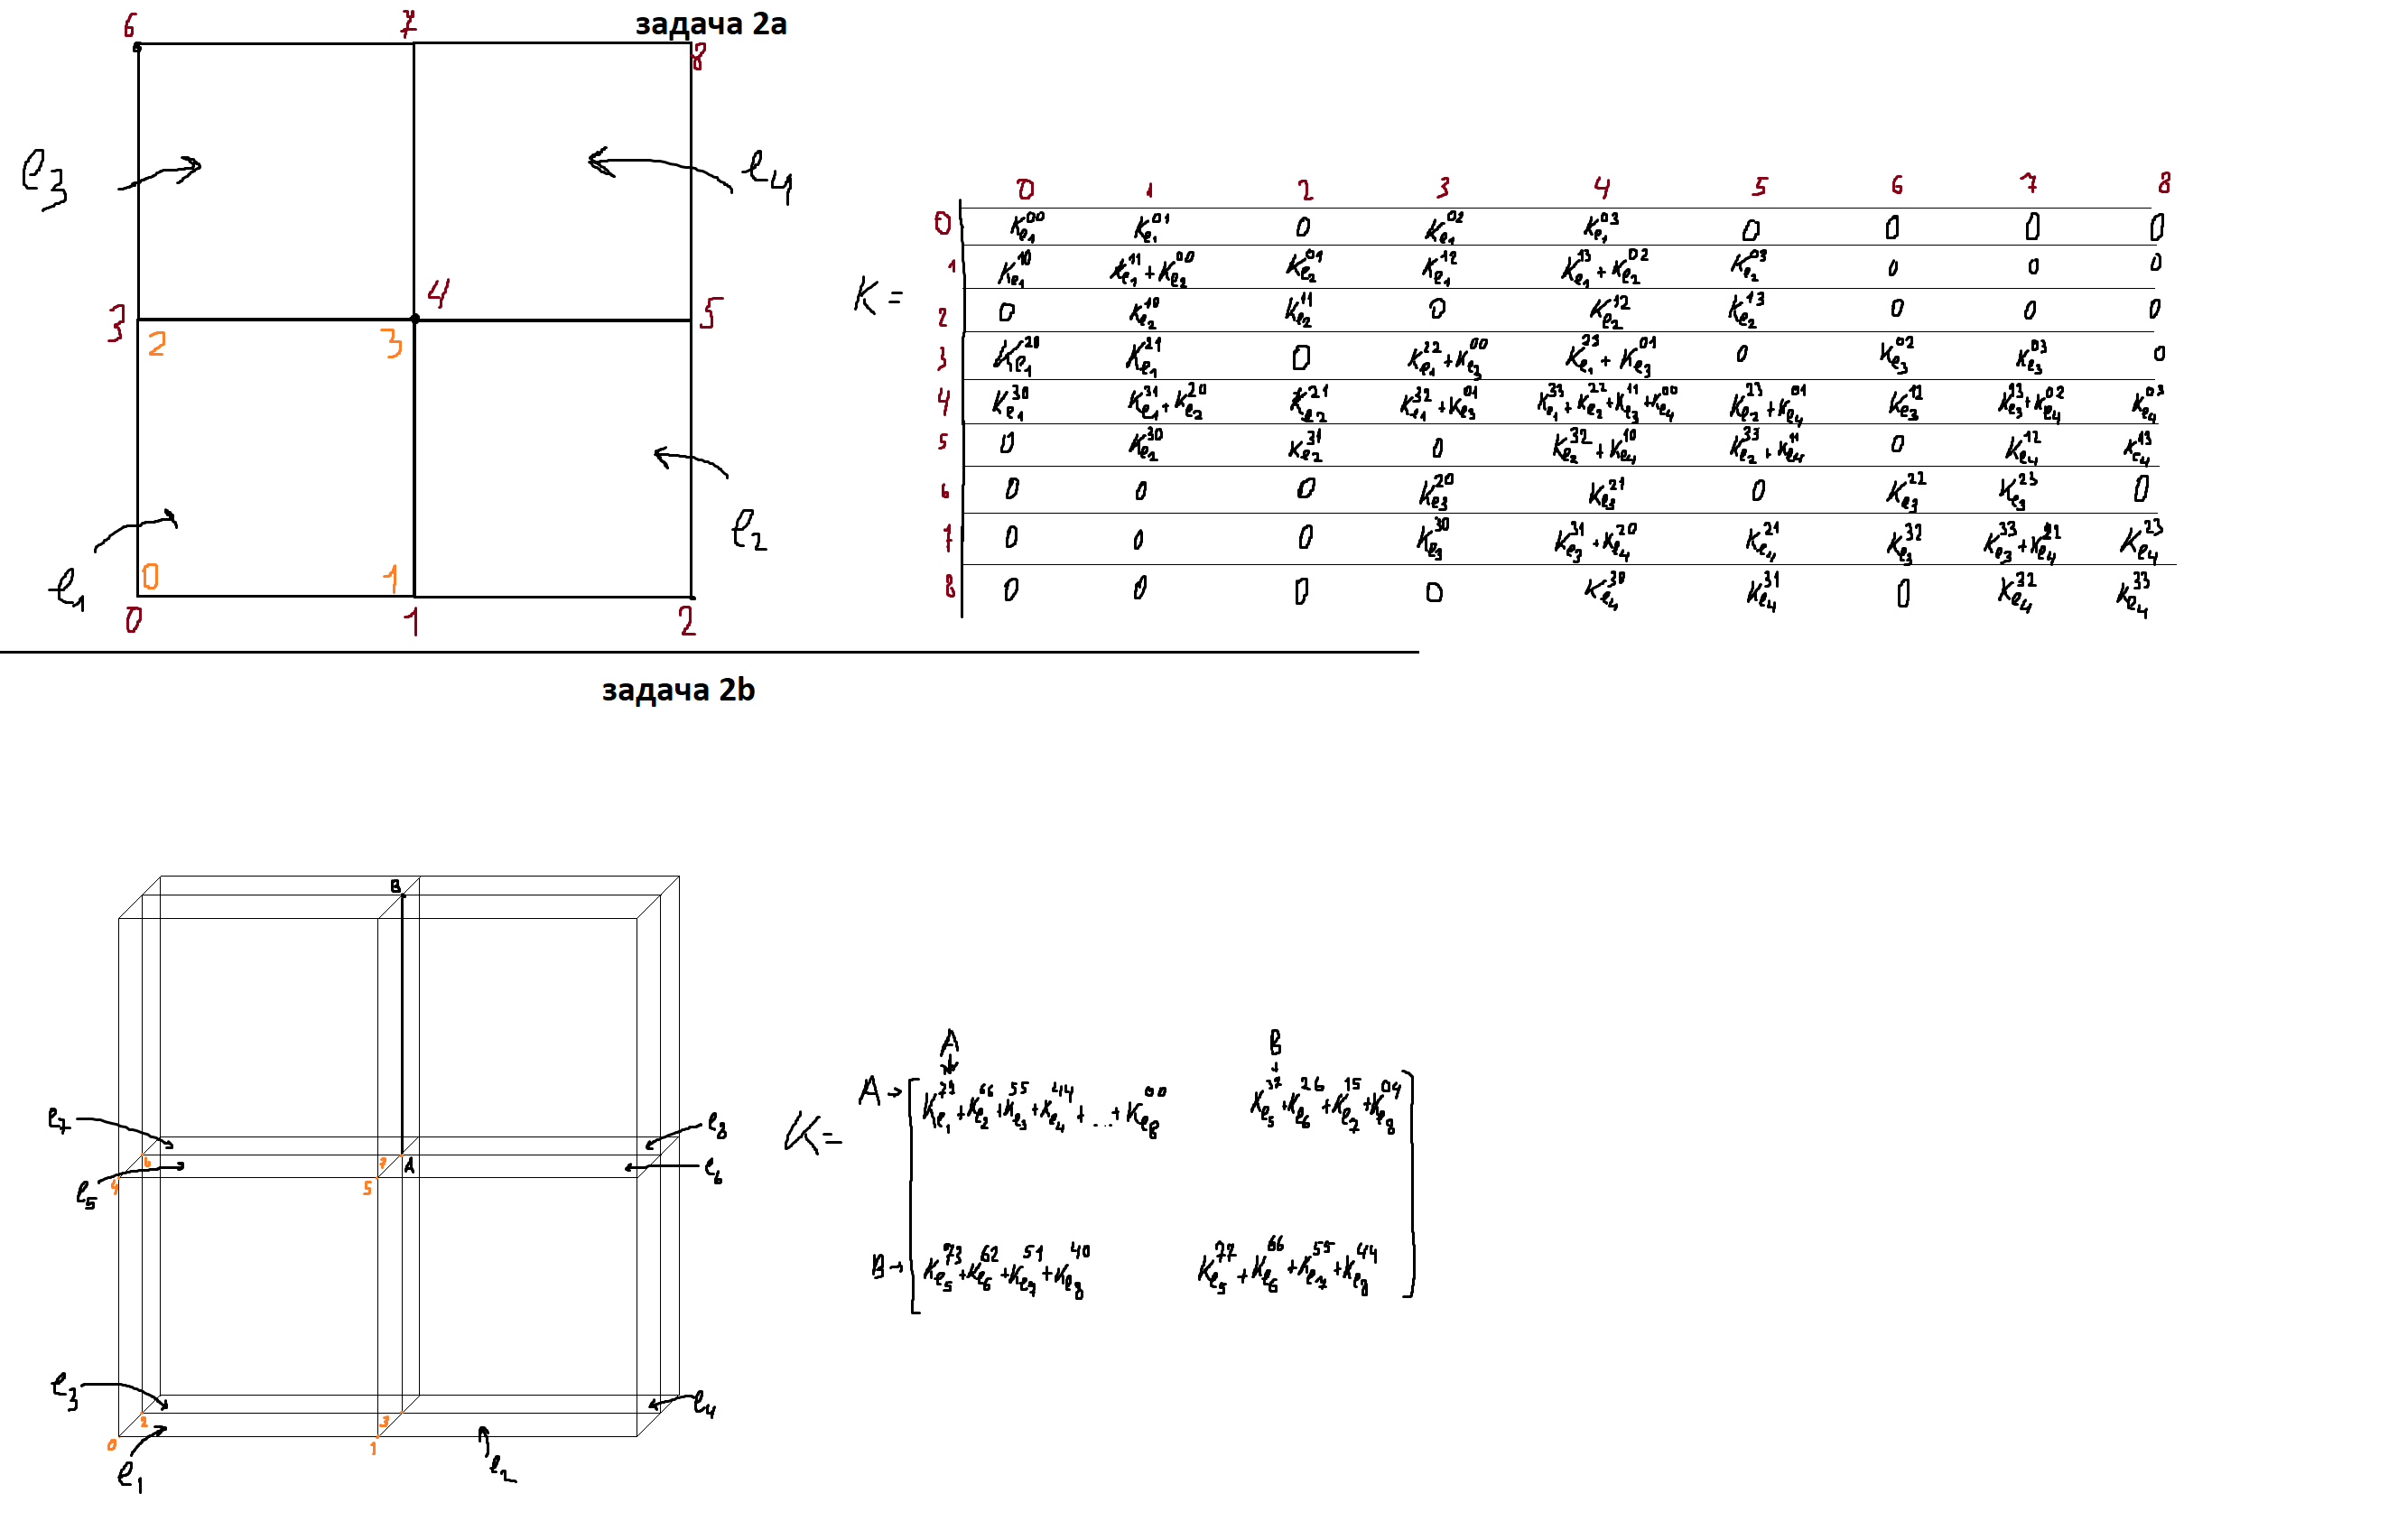 задача 2a
6 7 8
e3 e4
3 4 5
2 3
e1 e2
0 1
0 1 2
0 1 2 3 4 5 6 7 8
K =
0 K_e1^00 K_e1^01 0 K_e1^02 K_e1^03 0 0 0 0
1 K_e1^10 K_e1^11 + K_e2^00 K_e2^01 K_e1^12 K_e1^13 + K_e2^02 K_e2^03 0 0 0
2 0 K_e2^10 K_e2^11 0 K_e2^12 K_e2^13 0 0 0
3 K_e1^20 K_e1^21 0 K_e1^22 + K_e3^00 K_e1^23 + K_e3^01 0 K_e3^02 K_e3^03 0
4 K_e1^30 K_e1^31 + K_e2^20 K_e2^21 K_e1^32 + K_e3^01 K_e1^33 + K_e2^22 + K_e3^11 + K_e4^00 K_e2^23 + K_e4^01 K_e3^12 K_e3^13 + K_e4^02 K_e4^03
5 0 K_e2^30 K_e2^31 0 K_e2^32 + K_e4^10 K_e2^33 + K_e4^11 0 K_e4^12 K_e4^13
6 0 0 0 K_e3^20 K_e3^21 0 K_e3^22 K_e3^23 0
7 0 0 0 K_e3^30 K_e3^31 + K_e4^20 K_e4^21 K_e3^32 K_e3^33 + K_e4^22 K_e4^23
8 0 0 0 0 K_e4^30 K_e4^31 0 K_e4^32 K_e4^33
задача 2b
B
e7 e8
6 7 A
e5 4 5 e6
e3 e4
2 3
0 1
e1 e2
A B
K =
A → K_e1^77 + K_e2^66 + K_e3^55 + K_e4^44 + ... + K_e8^00 K_e5^37 + K_e6^26 + K_e7^15 + K_e8^04
B → K_e5^73 + K_e6^62 + K_e7^51 + K_e8^40 K_e5^77 + K_e6^66 + K_e7^55 + K_e8^44